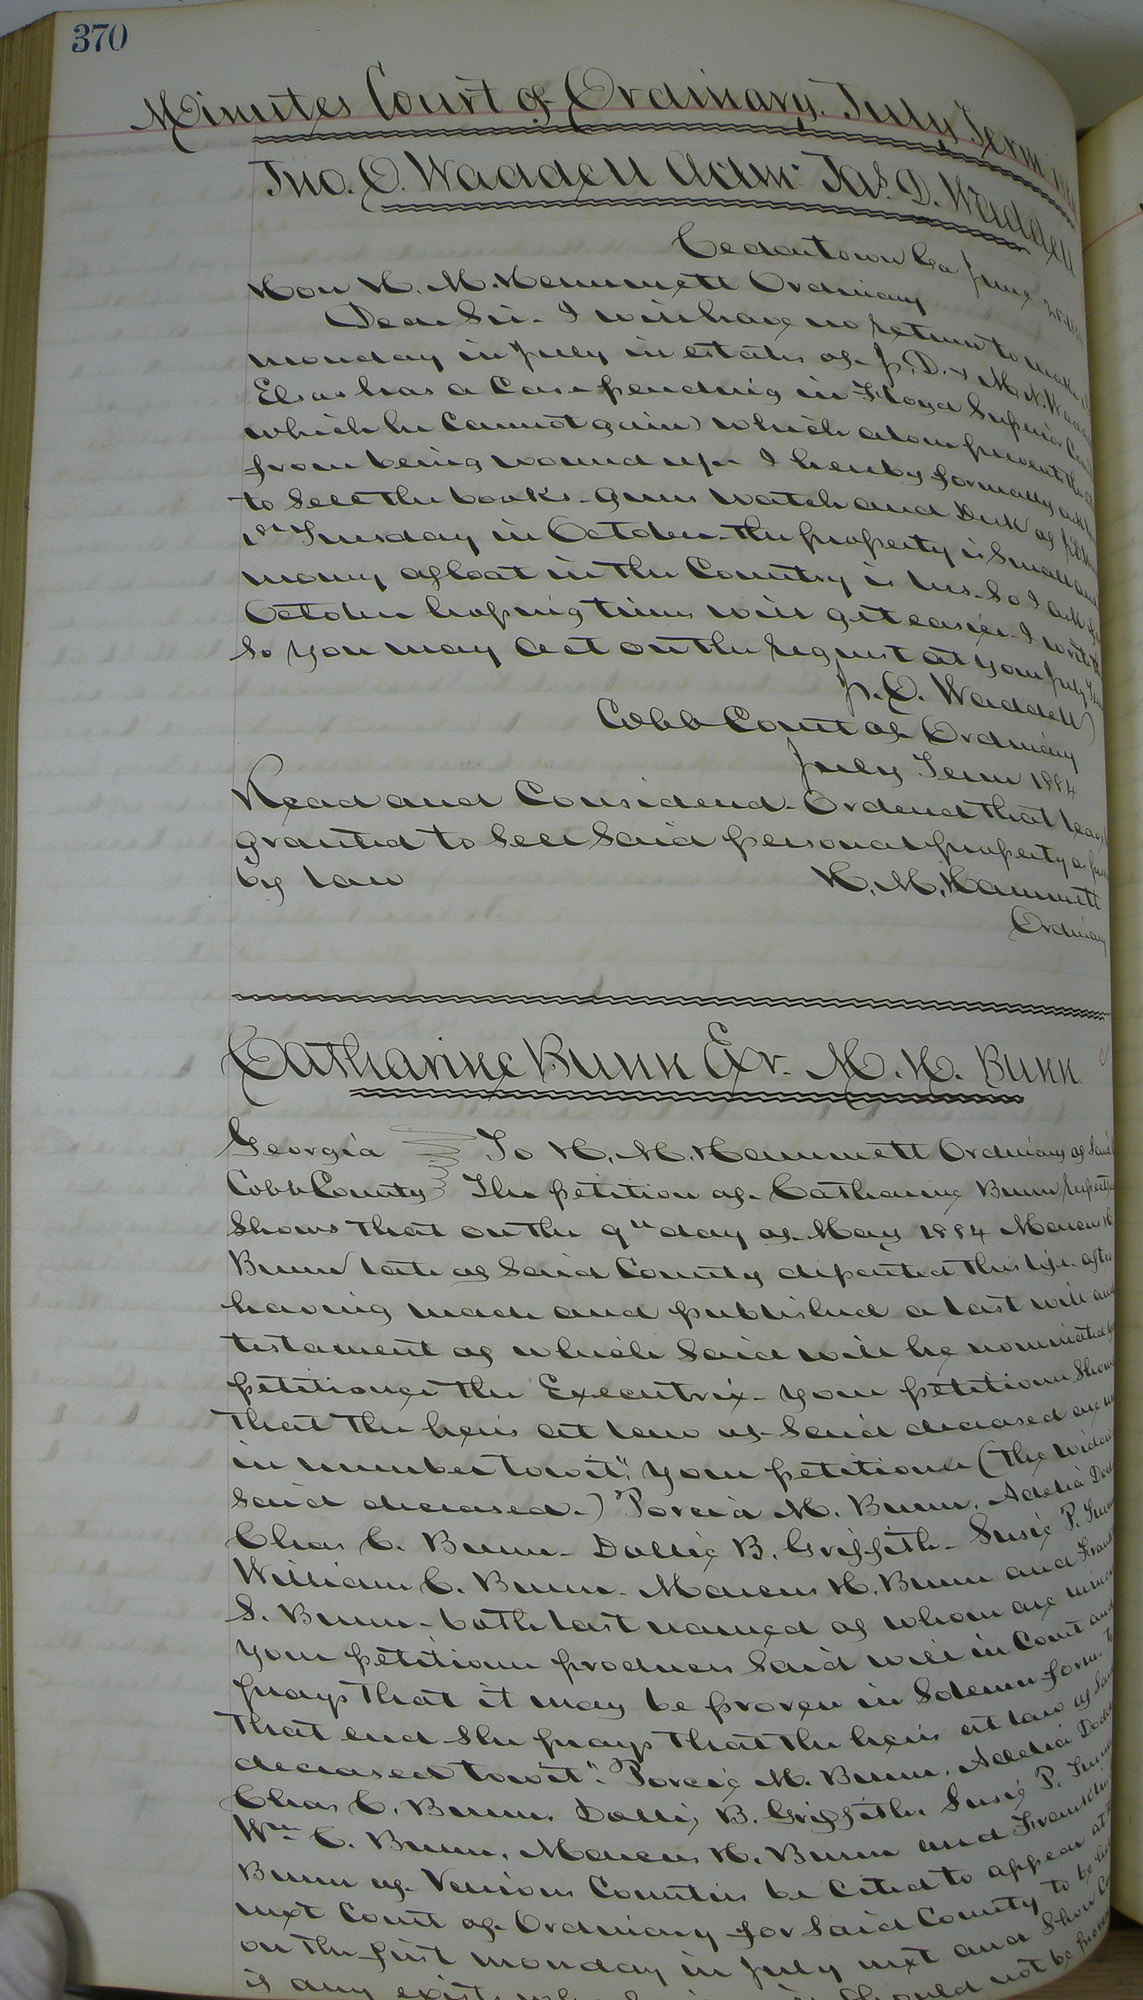 370
Minutes Court of Ordinary. July Term
Jno. O. Waddell Adm'r Jas. D. Waddell
Cedartown Ga June
Hon H. M. Hammett Ordinary
Dear Sir. I will have no return to make
monday in July in estates of J. D. & M. N.
Elsas has a case pending in Floyd Superior
which he cannot gain) which alone prevents the
from being wound up. I hereby formally ask
to sell the books. guns watch and Desk of
1st Tuesday in October. the property is small and
money afloat in the Country is less. So I ask for
October hoping times will get easier. I write
so you may act on the request at your July
J. O. Waddell
Cobb Court of Ordinary
July Term 1884
Read and Considered. Ordered that
granted to sell said personal property
by law H. M. Hammett
Ordinary
Catharine Bunn Exr. M. H. Bunn
Georgia To H. M. Hammett Ordinary of said
Cobb County The petition of Catharine Bunn
Shows that on the 9th day of May 1884 Marcus H.
Bunn late of said County departed this life after
having made and published a last will and
testament of which said will he nominated
petitioner the Executrix. your petitioner shows
that the heirs at law of said deceased are
in number towit", your petitioner (the widow
said deceased.) Porcia M. Bunn. Adelia
Chas C. Bunn. Dollie B. Griffith. Susie P.
William C. Bunn. Marcus H. Bunn and
S. Bunn. both last named of whom are
your petitioner produces said will in Court and
prays that it may be proven in Solemn form.
that end she prays that the heirs at law of
deceased towit". Porcie M. Bunn, Addelia
Chas C. Bunn. Dollie B. Griffith. Susie P.
Wm C. Bunn, Marcus H. Bunn and Franklin
Bunn of Various Counties be cited to appear at
next Court of Ordinary for said County to be
on the first monday in July next and show
if any exists why should not be